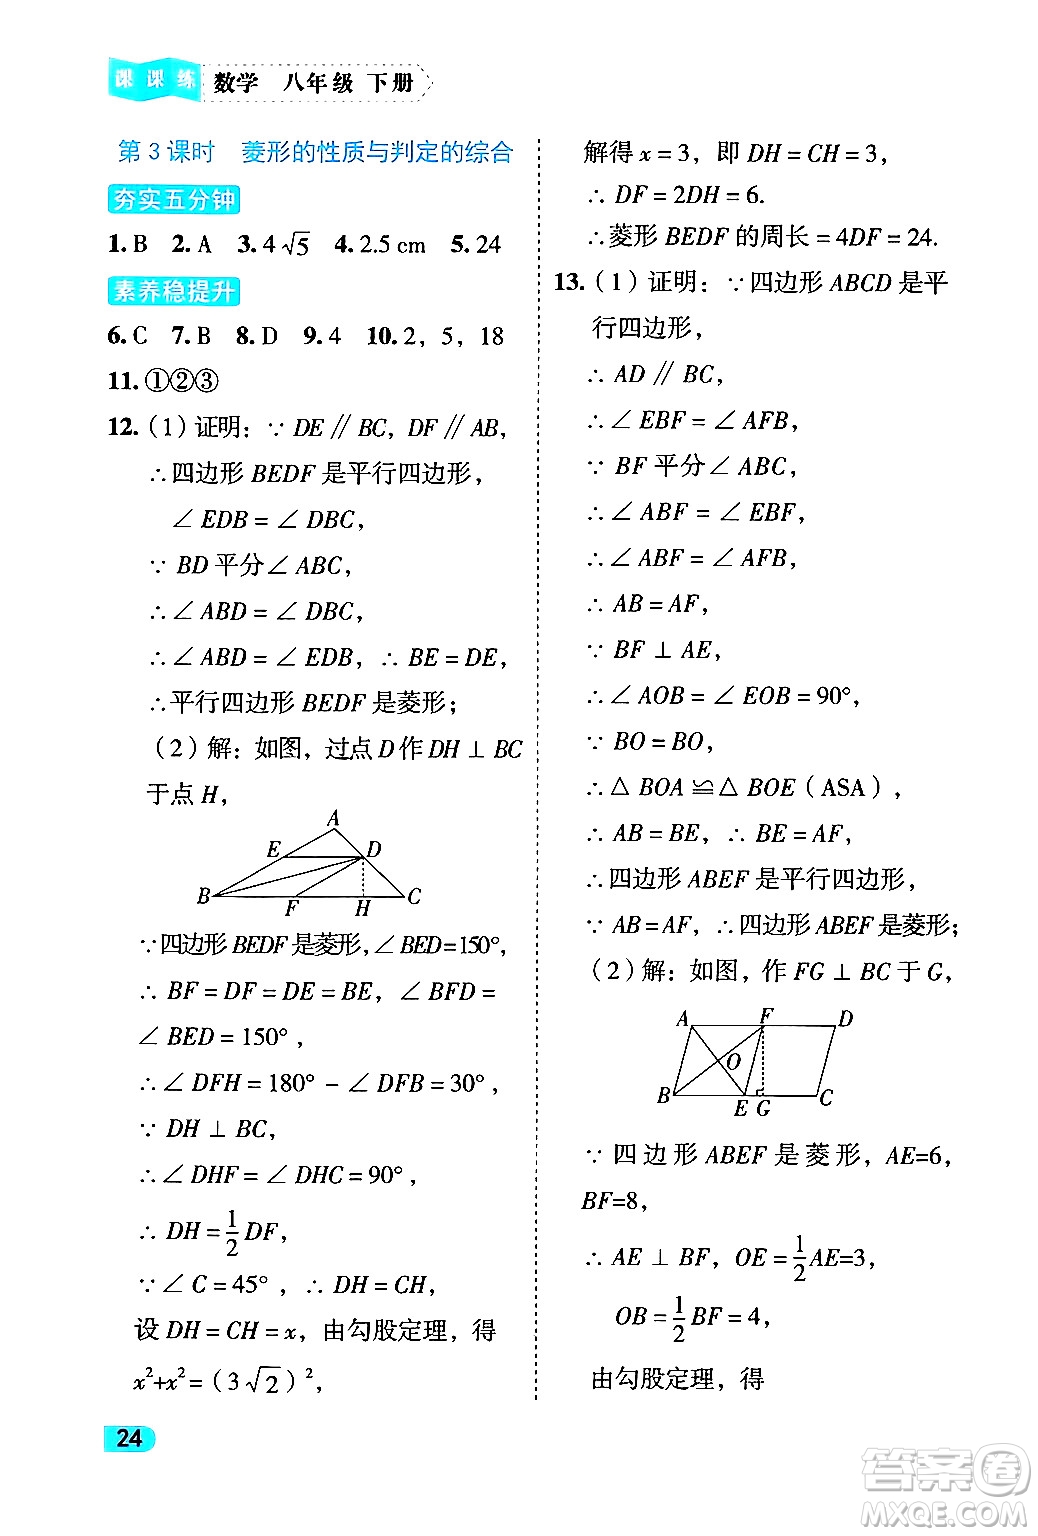 课课练 数学 八年级 下册
第 3 课时 菱形的性质与判定的综合
夯实五分钟
1. B 2. A 3. 4√5 4. 2.5 cm 5. 24
素养稳提升
6. C 7. B 8. D 9. 4 10. 2，5，18
11. ①②③
12.（1）证明：∵ DE ∥ BC，DF ∥ AB，
∴四边形 BEDF 是平行四边形，
∠ EDB = ∠ DBC，
∵ BD 平分∠ ABC，
∴∠ ABD = ∠ DBC，
∴∠ ABD = ∠ EDB，∴ BE = DE，
∴平行四边形 BEDF 是菱形；
（2）解：如图，过点 D 作 DH ⊥ BC
于点 H，
A
E D
B F H C
∵四边形 BEDF 是菱形，∠ BED=150°，
∴ BF = DF = DE = BE，∠ BFD =
∠ BED = 150°，
∴∠ DFH = 180° − ∠ DFB = 30°，
∵ DH ⊥ BC，
∴∠ DHF = ∠ DHC = 90°，
∴ DH = 1/2 DF，
∵∠ C = 45°，∴ DH = CH，
设 DH = CH = x，由勾股定理，得
x²+x²=（3√2）²，
24
解得 x = 3，即 DH = CH = 3，
∴ DF = 2DH = 6.
∴菱形 BEDF 的周长 = 4DF = 24.
13.（1）证明：∵四边形 ABCD 是平
行四边形，
∴ AD ∥ BC，
∴∠ EBF = ∠ AFB，
∵ BF 平分∠ ABC，
∴∠ ABF = ∠ EBF，
∴∠ ABF = ∠ AFB，
∴ AB = AF，
∵ BF ⊥ AE，
∴∠ AOB = ∠ EOB = 90°，
∵ BO = BO，
∴△ BOA ≌△ BOE（ASA），
∴ AB = BE，∴ BE = AF，
∴四边形 ABEF 是平行四边形，
∵ AB = AF，∴四边形 ABEF 是菱形；
（2）解：如图，作 FG ⊥ BC 于 G，
A F D
O
B E G C
∵ 四边形 ABEF 是菱形，AE=6，
BF=8，
∴ AE ⊥ BF，OE = 1/2 AE=3，
OB = 1/2 BF = 4，
由勾股定理，得
答案圈
MXQE.COM